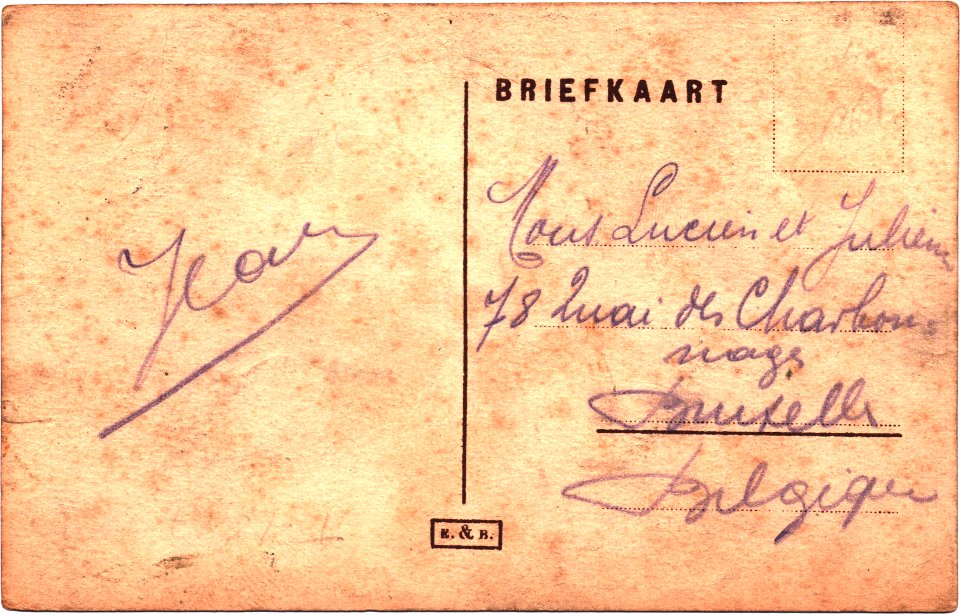 BRIEFKAART
Jean
Mons Lucien et Julien
78 Quai des Charbon-
nages
Bruxelle
Belgique
E. & B.